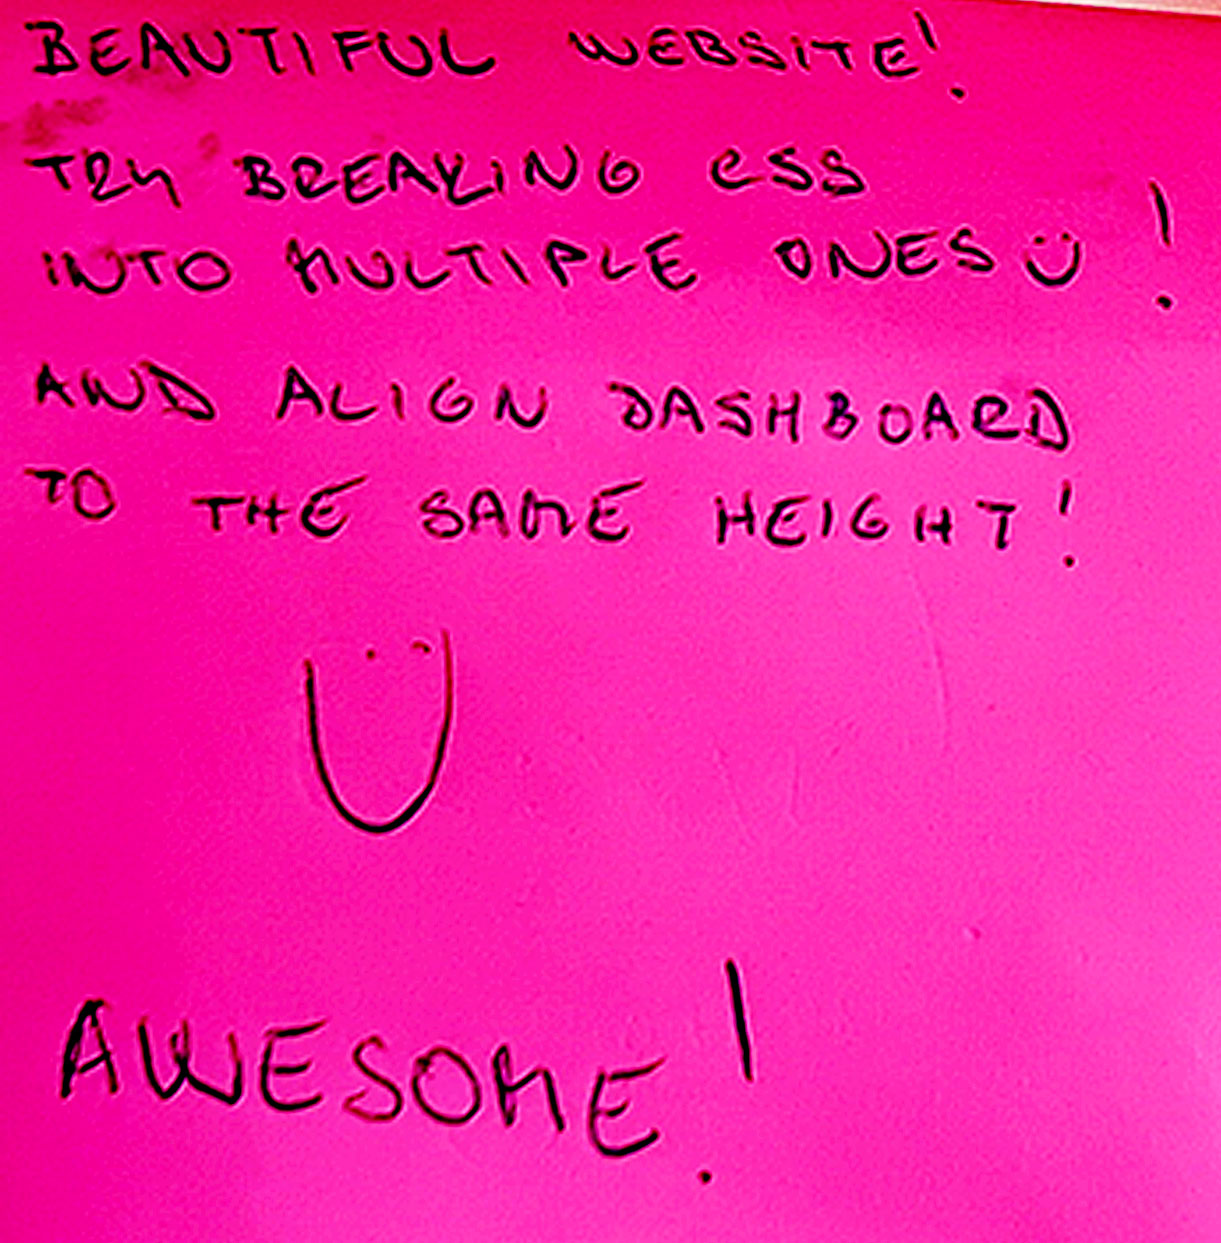 BEAUTIFUL WEBSITE!
TRY BREAKING CSS
INTO MULTIPLE ONES !
AND ALIGN DASHBOARD
TO THE SAME HEIGHT!
AWESOME!